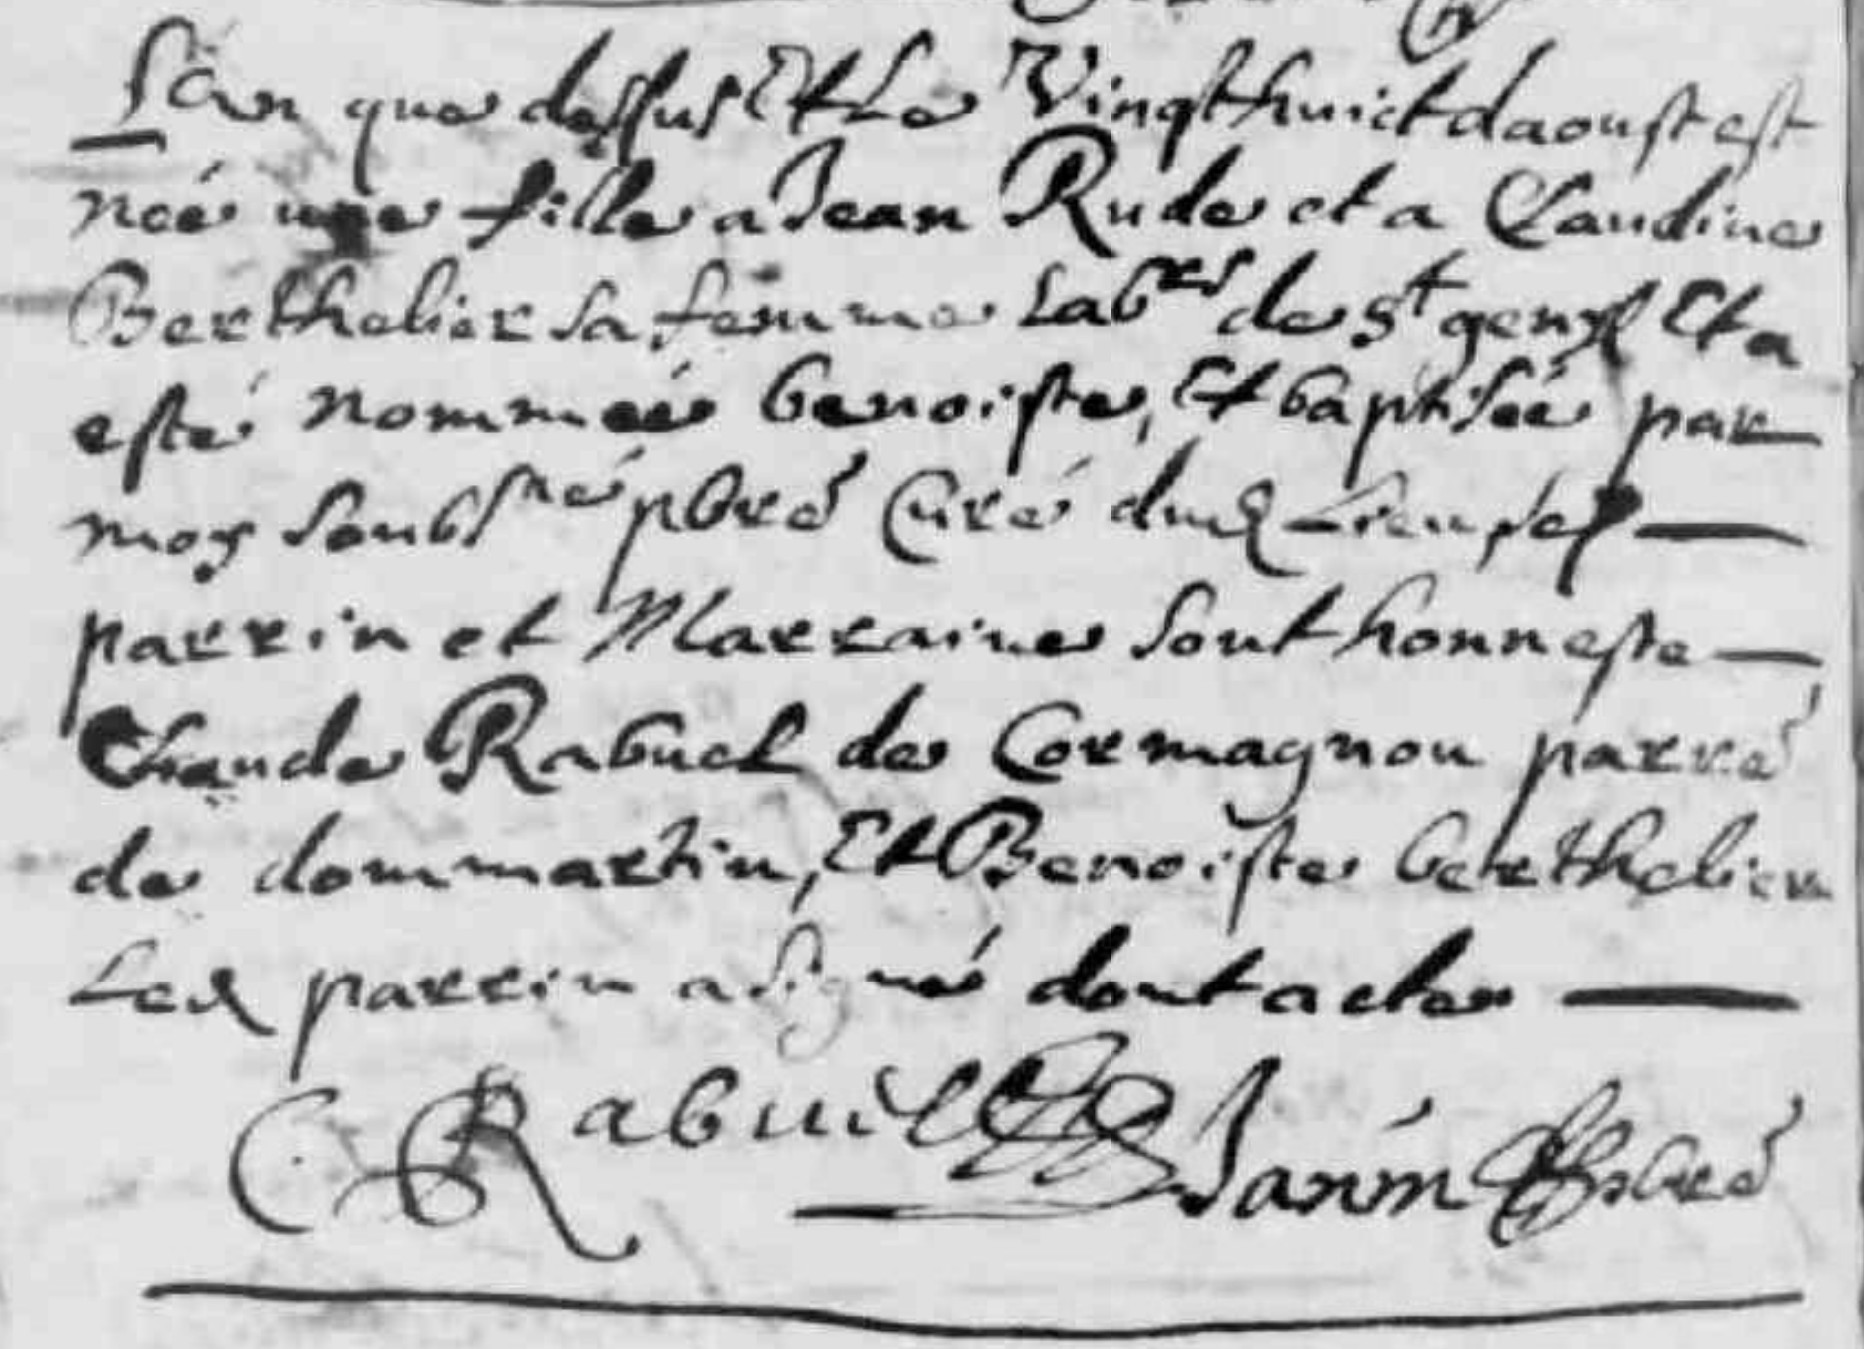 Lan que dessus Et Le Vingt huict daoust est
née une fille a Jean Rude et a Claudine
Berthelier sa femme Labrs de st genys Et a
esté nommée benoiste, Et baptisée par
moy soubsné pbre Curé dud Lieu, Ses
parrin et Marraine sont honneste
Claude Rabuel de Cormagnon parré
de dommartin, Et Benoiste berthelier
Led parrin a signé dont acte
C Rabuil Janin pbre